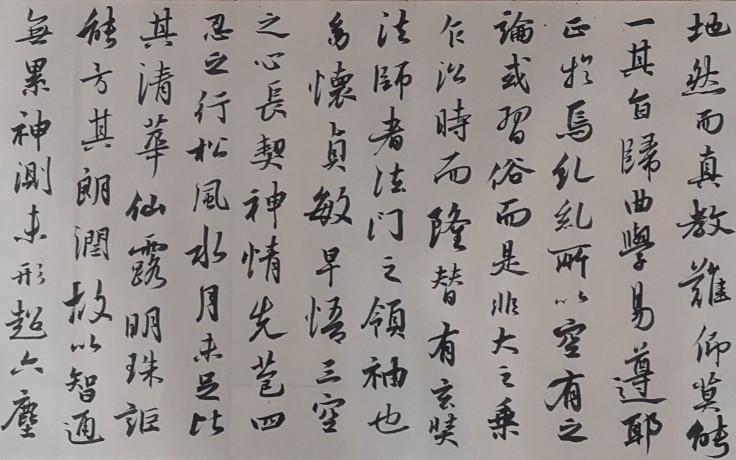 地然而真教難仰莫能
一其旨歸曲學易遵耶
正於焉紛糺所以空有之
論或習俗而是非大之乘
乍沿時而隆替有玄奘
法師者法門之領袖也
幼懷貞敏早悟三空
之心長契神情先苞四
忍之行松風水月未足比
其清華仙露明珠詎
能方其朗潤故以智通
無累神測未形超六塵